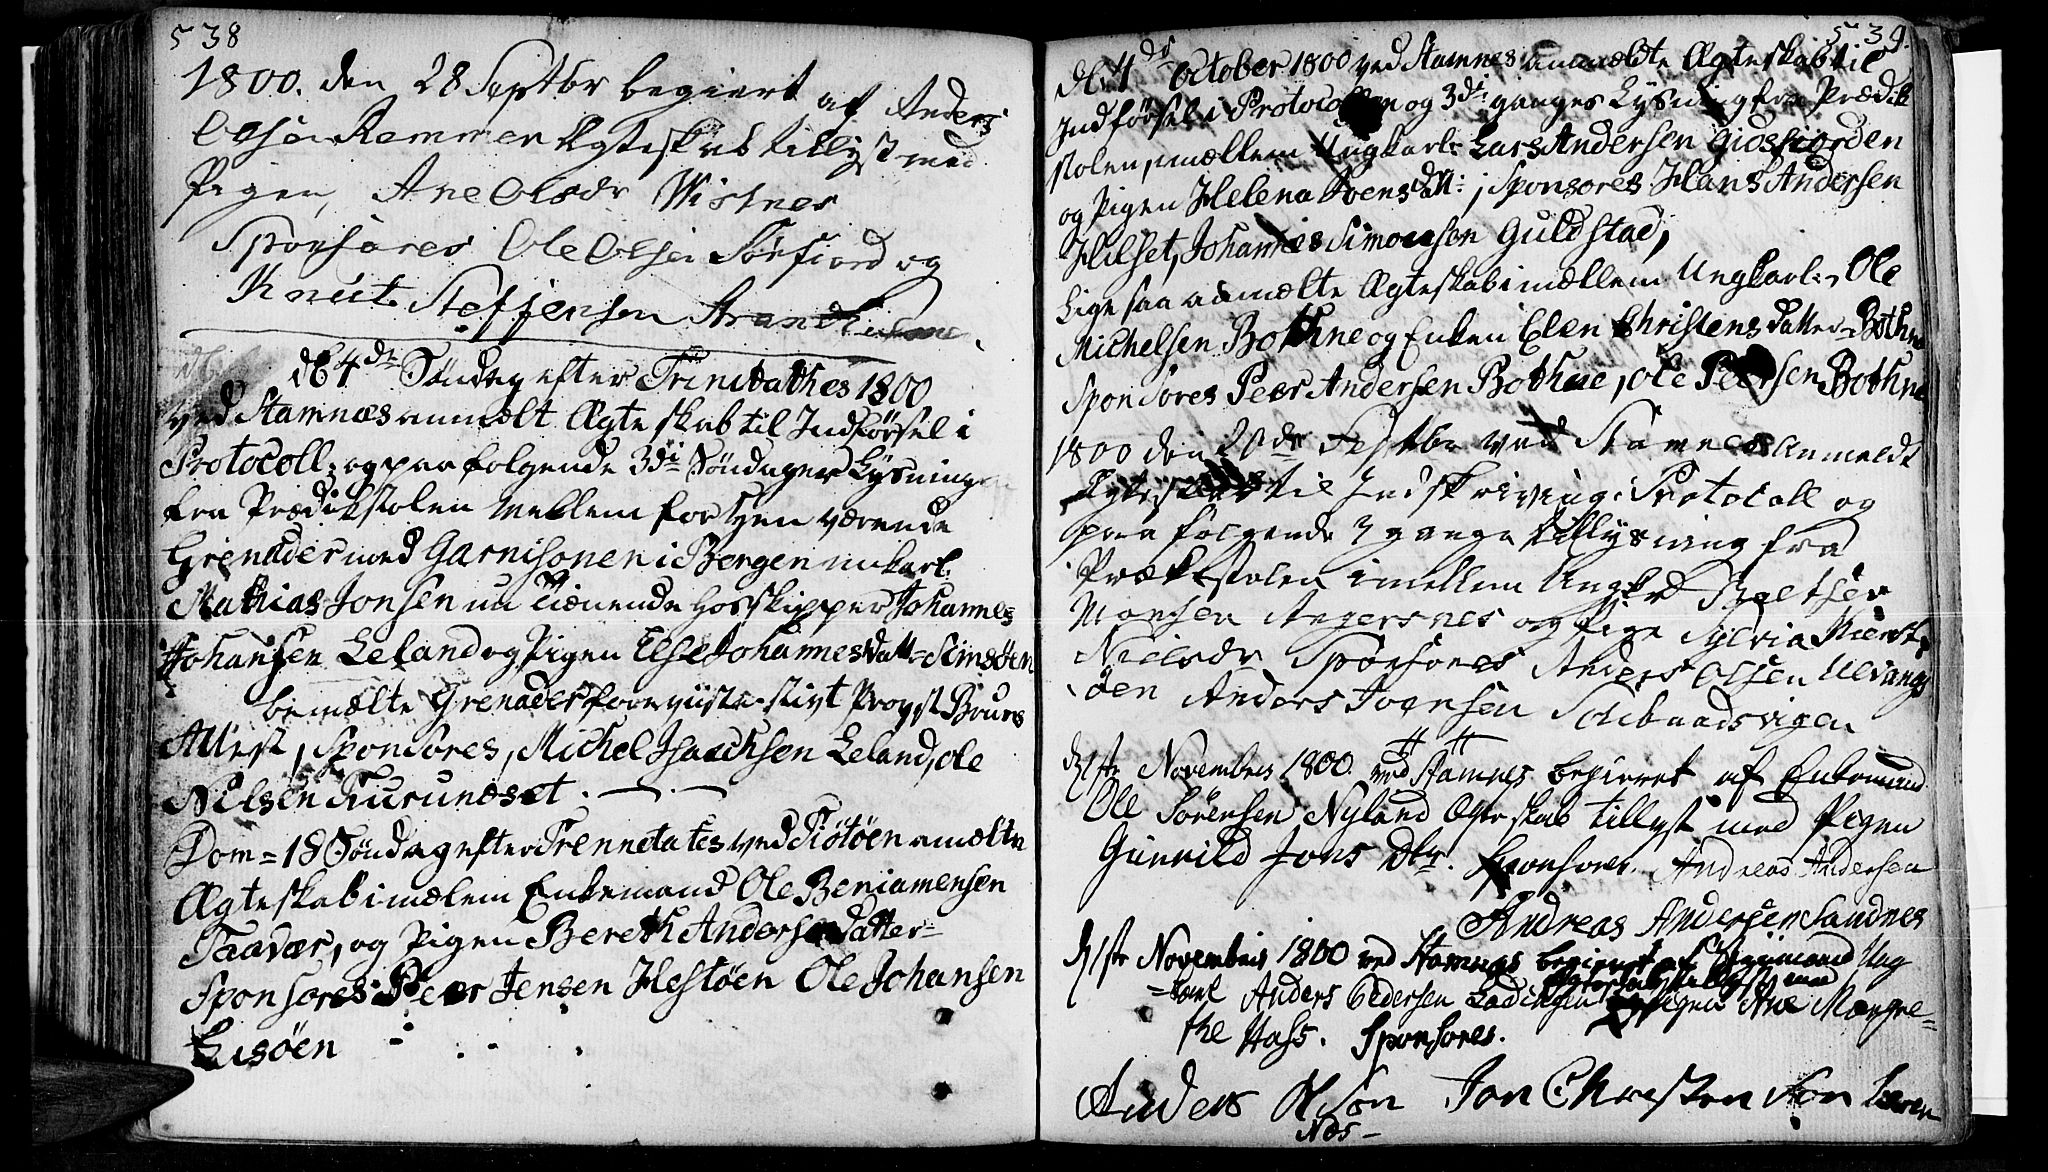 538
1800. den 28 Septbr begiert af Anders
Olsen Remmen Ægteskab tillyst med
Pigen, Ane Olsdr Wistnes
Sponsores Ole Olsen Sørfiord og
Knut Steffensen
d 4de Søndag efter Trinitathes 1800
ved Stamnæs anmælt Ægteskab til Indførsel i
Protocoll; og paa følgende 3di Søndager Lysning
fra Prædikstolen Mellem for hen værende
Grenader med Garnisonen i Bergen unkarl:
Mathias Jonsen nu Tiænende hos skipper Johannes
Johansen Leland og Pigen Else Johannesdatter
bemælte Grenader foreviiste Provst Bruns
Attest, Sponsores, Michel Isaacksen Leland, ole
Nilsen Turundset.
Dom = 18 Søndag efter Trennetates ved Tiøtøen anmælte
Ægteskab imælem Enkemand Ole Beniamensen
Taavær, og Pigen Bereth Andersdatter
Sponsores Peer Jensen Hestøen Ole Johansen
Lisøen
539.
d 4de october 1800 ved Stamnes anmældte Ægteskab til
Indførsel i Protocollen og 3di ganges Lysning fra Prædik
stolen, imællem Ungkarl: Lars Andersen
og Pigen Helena Joensdtr: ; Sponsores Hans Andersen
Hilset, Johannes Simonsen Guldstad;
Lige saa anmælte Ægteskab imællem Ungkarl: Ole
Michelsen Bothne og Enken Elen Christens datter Bothne
Sponsores Peer Andersen Bothne, ole Peersen Bothne
1800 den 20de Septbr ved Stamnes Anmeldt
Ægteskab til Indskrivning i Protocoll og
paa følgende 3 gange tillysning fra
Prækestolen imellem Ungkrl Baltser
Monsen Angersnes og Pige Sylvia Kierst
Nielsdr Sponsores Anders Olsen Ulvangs
den Anders Ivensen
d 1ste Novembris 1800. ved Stamnes begieret af Enkemand
Ole Sørensen Nyland Ægteskab tillyst med Pigen
Gunnild Jons Dtr. Sponsores. Andreas Andersen
Andreas Andersen Sandnes
d 1ste Novembris 1800 ved Stamnes begieret af Ung
Ægteskab tillyst med
=karl Anders Pedersen Ladingen Pigen Ane Margre=
the Hass. Sponsores.
Anders Olson Jon Christen son
Næs